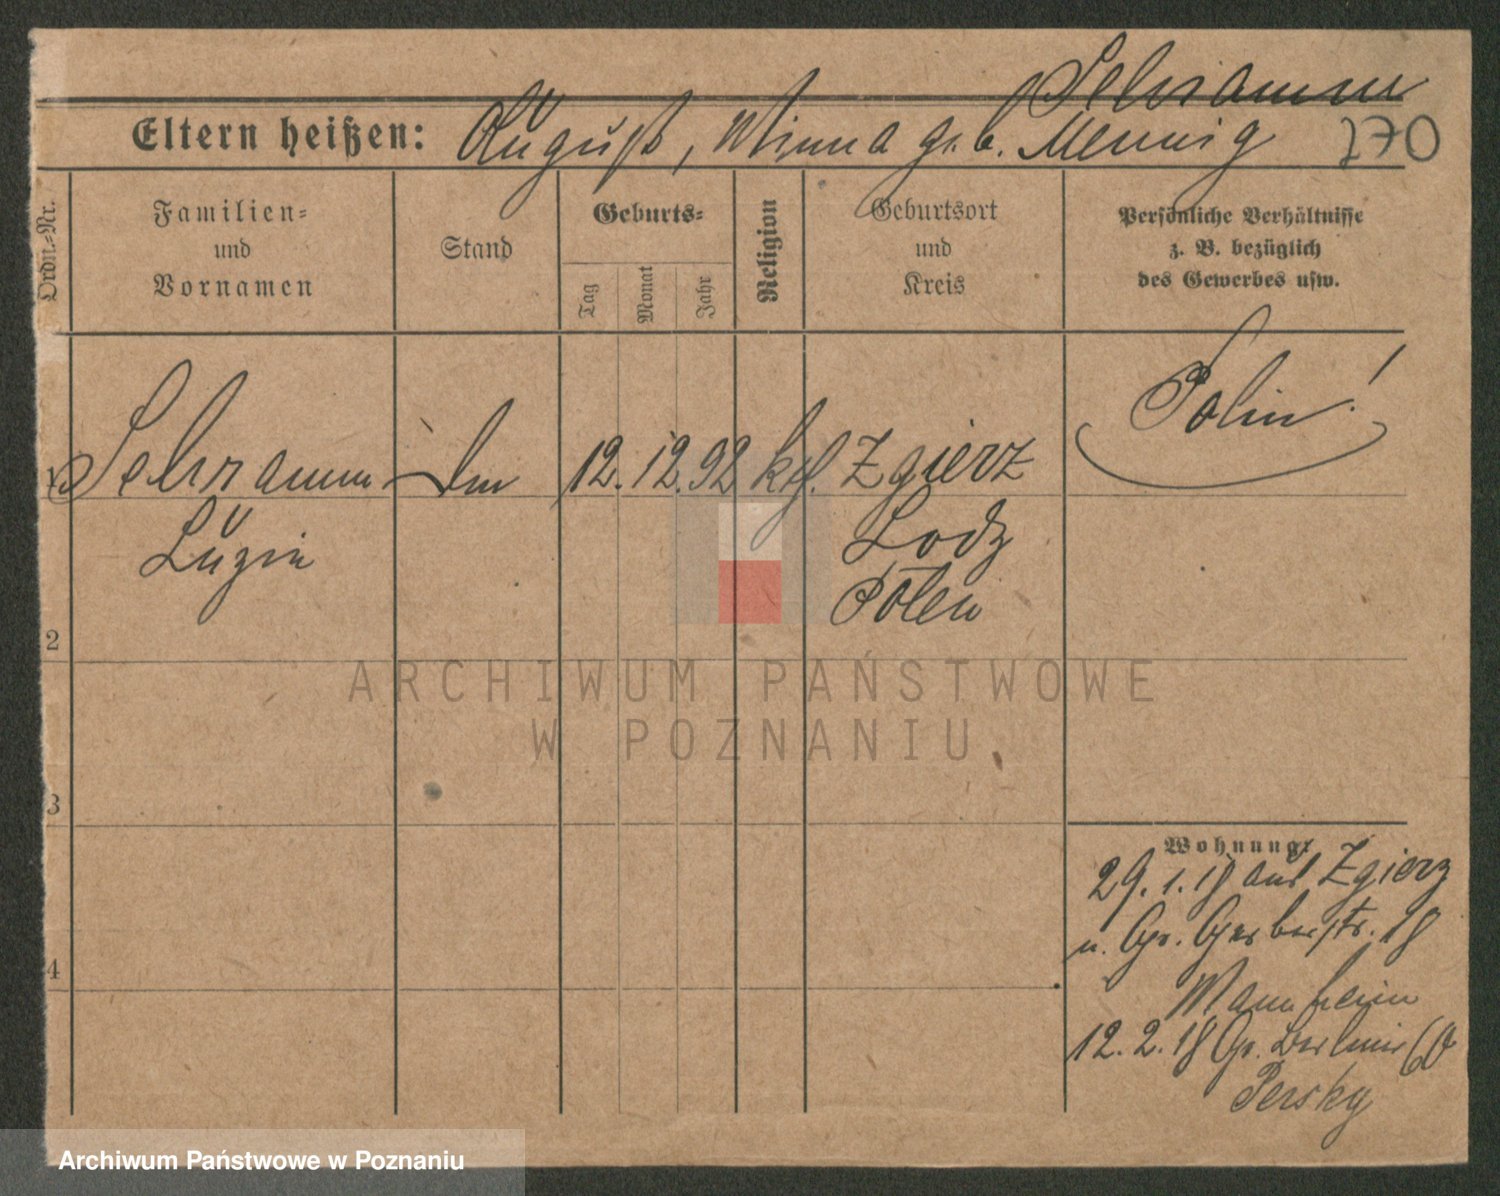 Schramm
Eltern heißen: August, Minna geb. Mennig 270
Ordn.-Nr.
Familien-
und
Vornamen
Stand
Geburts-
Tag
Monat
Jahr
Religion
Geburtsort
und
Kreis
Persönliche Verhältnisse
z. B. bezüglich
des Gewerbes usw.
Polin!
1 Schramm 12. 12. 92 kth. Zgierz
Luzie Lodz
Polen
2
ARCHIWUM PAŃSTWOWE
W POZNANIU
3
Wohnung:
29. 1. 18 aus Zgierz
n. Gr. Gerberstr. 18
4
Mannheim
12. 2. 18 Gr. Berliner 60
Persky
Archiwum Państwowe w Poznaniu